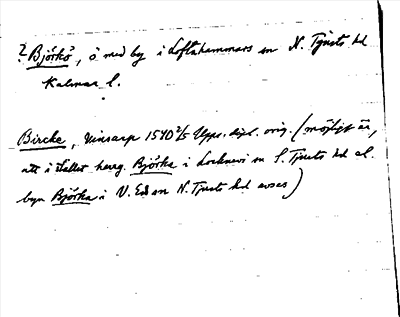 ? Björkö, ö med by i Loftahammars sn N. Tjusts hd
Kalmar l.
Bircke, Vinsarp 1540 2/5 Upps. dipl. orig. (möjligt är,
att i stället herrg. Björka i Locknevi sn S. Tjusts hd el.
byn Björka i V. Ed sn N. Tjusts hd avses)